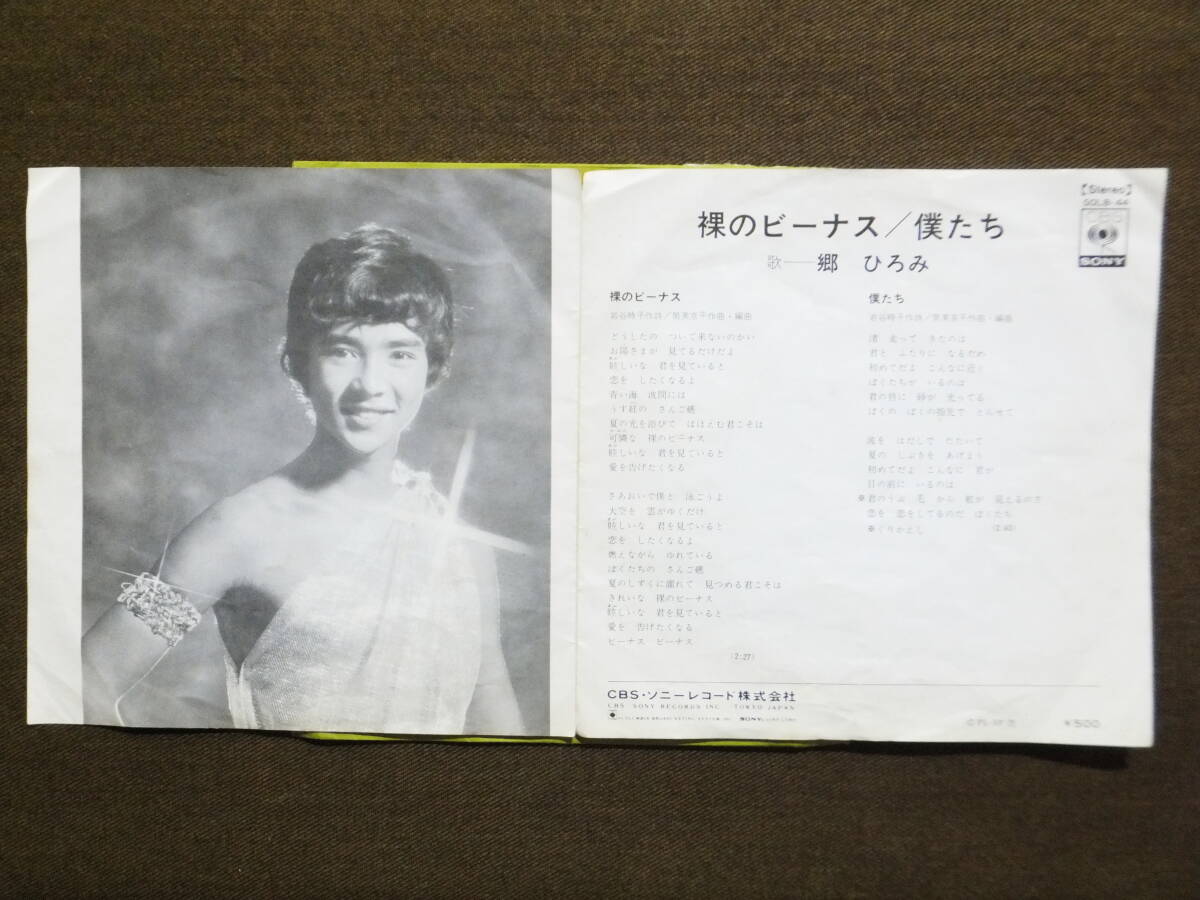 【Stereo】
SOLB-44
CBS
SONY
裸のビーナス／僕たち
歌──郷 ひろみ
裸のビーナス
岩谷時子作詩／筒美京平作曲・編曲
どうしたの ついて来ないのかい
お陽さまが 見てるだけだよ
眩しいな 君を見ていると
恋を したくなるよ
青い海 波間には
うす紅の さんご礁
夏の光を浴びて ほほえむ君こそは
可憐な 裸のビーナス
眩しいな 君を見ていると
愛を告げたくなる
さあおいで僕と 泳ごうよ
大空を 雲がゆくだけ
眩しいな 君を見ていると
恋を したくなるよ
燃えながら ゆれている
ぼくたちの さんご礁
夏のしずくに濡れて 見つめる君こそは
きれいな 裸のビーナス
眩しいな 君を見ていると
愛を 告げたくなる
ビーナス ビーナス
(2:27)
僕たち
岩谷時子作詩／筒美京平作曲・編曲
渚 走って きたのは
君と ふたりに なるため
初めてだよ こんなに近く
ぼくたちが いるのは
君の 砂が 光ってる
ぼくの ぼくの指先で とらせて
波を はだしで たたいて
夏の しぶきを あげよう
初めてだよ こんなに 君が
目の前に いるのは
※君のうぶ毛 から が 見えるのさ
恋を 恋をしてるのだ ぼくたち
※くりかえし
CBS・ソニーレコード株式会社
CBS SONY RECORDS INC. TOKYO JAPAN
SONY
¥500